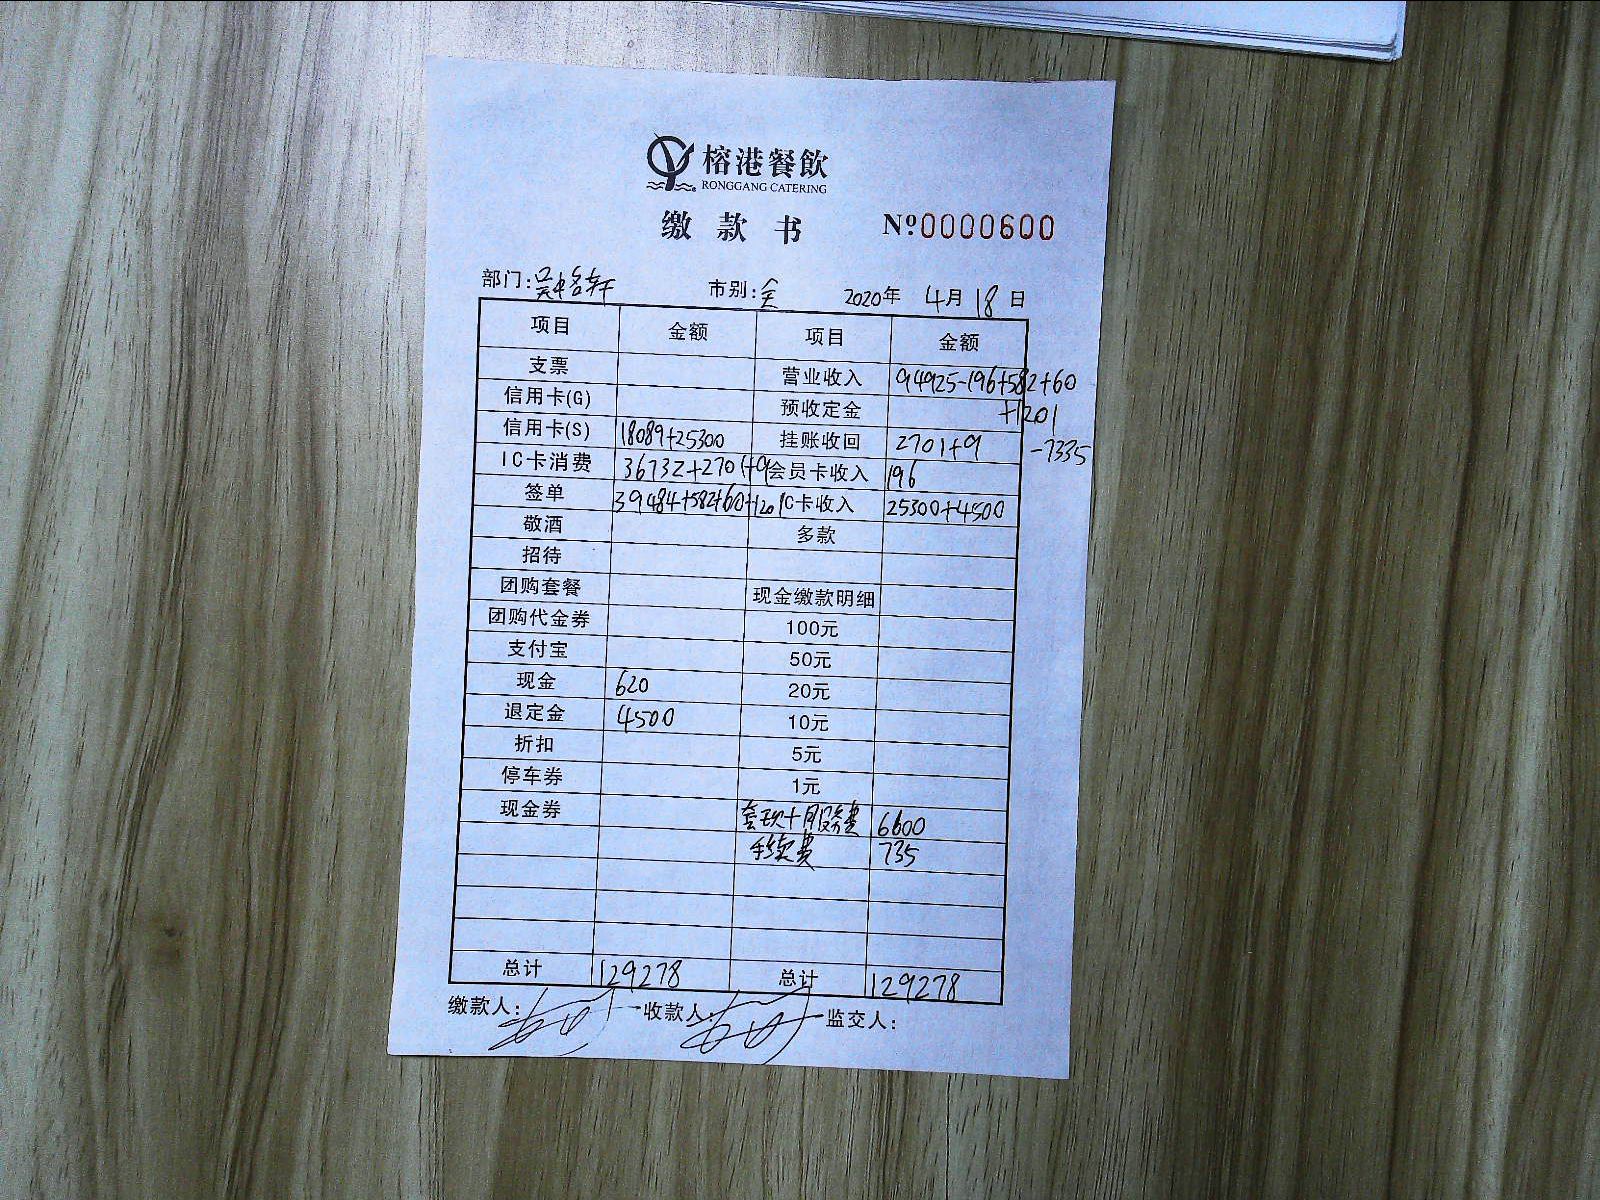 榕港餐飲
RONGGANG CATERING
缴款书 Nº0000600
部门: 市别:全 2020年 4月18日
项目 金额 项目 金额
支票 营业收入 94925-196+582+60
信用卡(G) 预收定金 +1201
信用卡(S) 18089+25300 挂账收回 2701+9 -7335
IC卡消费 36732+2701+9 会员卡收入 196
签单 39484+582+60+1201 IC卡收入 25300+4500
敬酒 多款
招待
团购套餐 现金缴款明细
团购代金券 100元
支付宝 50元
现金 620 20元
退定金 4500 10元
折扣 5元
停车券 1元
现金券 套现十月服务费 6600
手续费 735
总计 129278 总计 129278
缴款人: 收款人: 监交人: